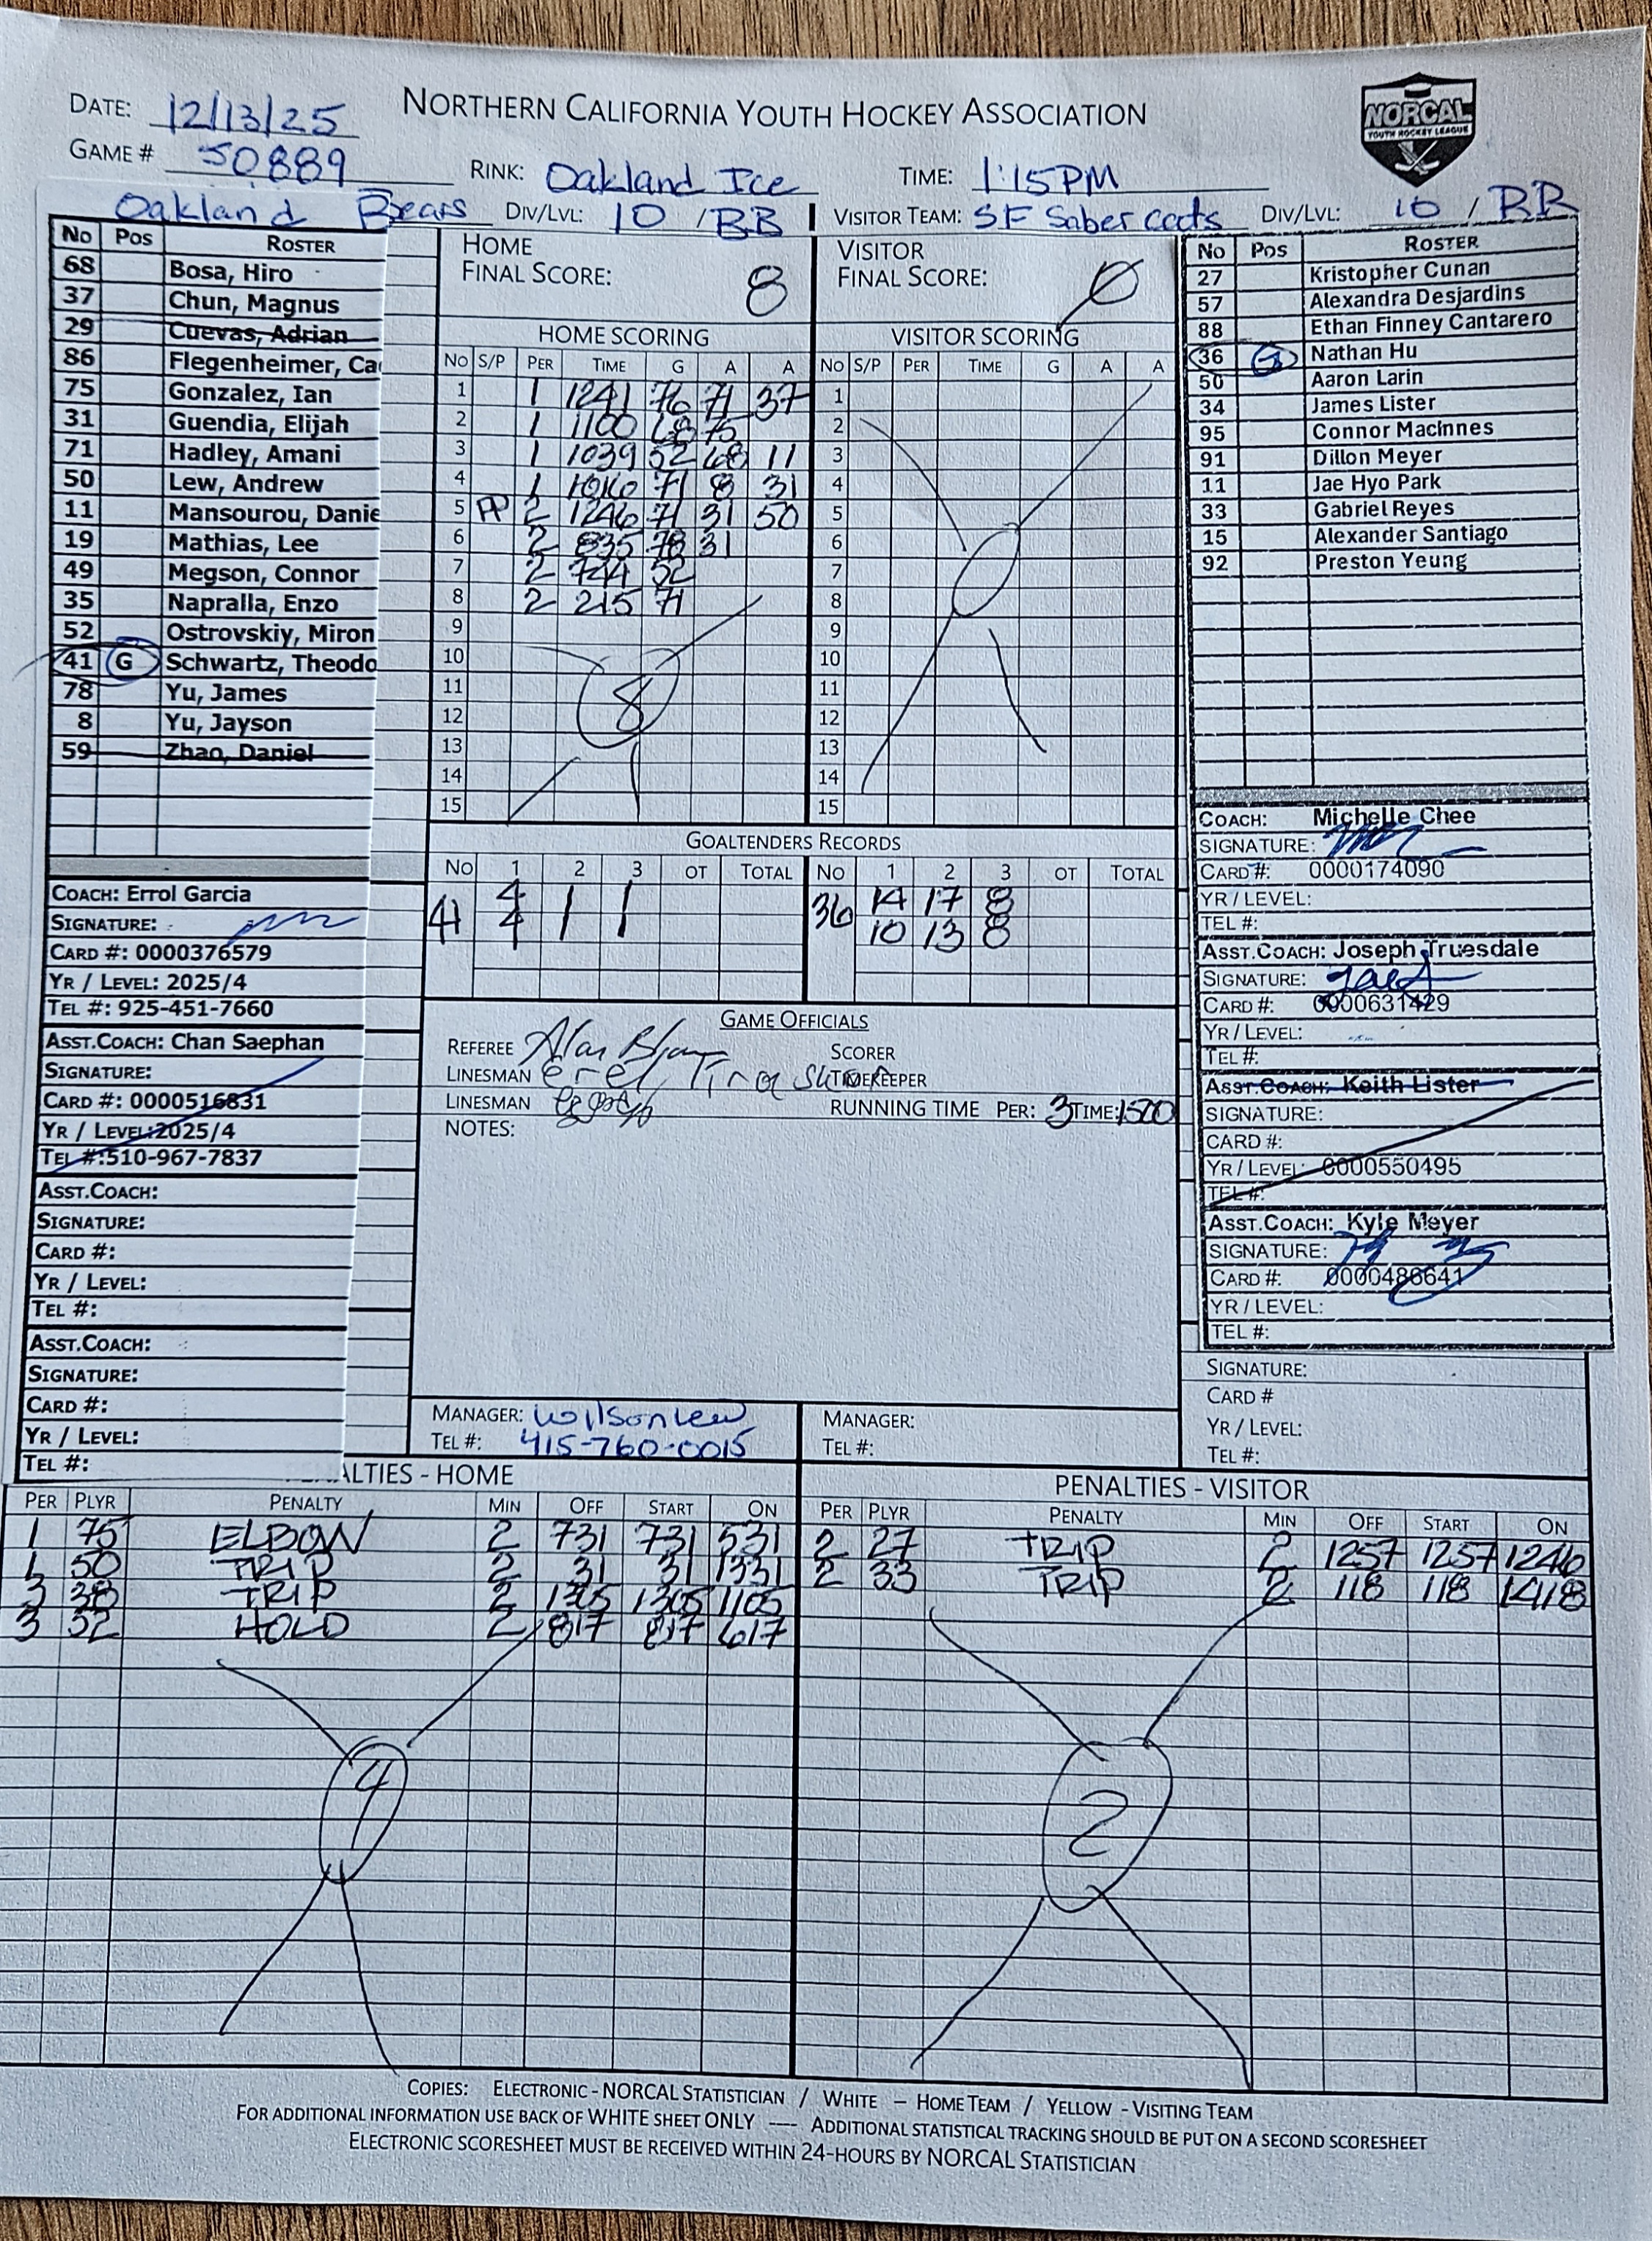 DATE: 12/13/25 NORTHERN CALIFORNIA YOUTH HOCKEY ASSOCIATION
NORCAL
YOUTH HOCKEY LEAGUE
GAME # 50889 RINK: Oakland Ice TIME: 1:15PM
Oakland Bears DIV/LVL: 10 / BB VISITOR TEAM: SF Sabercats DIV/LVL: 10 / BB
No Pos ROSTER
68 Bosa, Hiro
37 Chun, Magnus
29 Cuevas, Adrian
86 Flegenheimer, Ca
75 Gonzalez, Ian
31 Guendia, Elijah
71 Hadley, Amani
50 Lew, Andrew
11 Mansourou, Danie
19 Mathias, Lee
49 Megson, Connor
35 Napralla, Enzo
52 Ostrovskiy, Miron
41 G Schwartz, Theodo
78 Yu, James
8 Yu, Jayson
59 Zhao, Daniel
COACH: Errol Garcia
SIGNATURE:
CARD #: 0000376579
YR / LEVEL: 2025/4
TEL #: 925-451-7660
ASST.COACH: Chan Saephan
SIGNATURE:
CARD #: 0000516831
YR / LEVEL:2025/4
TEL #:510-967-7837
ASST.COACH:
SIGNATURE:
CARD #:
YR / LEVEL:
TEL #:
ASST.COACH:
SIGNATURE:
CARD #:
YR / LEVEL:
TEL #:
HOME
FINAL SCORE: 8
HOME SCORING
NO S/P PER TIME G A A
1 1 1241 76 71 37
2 1 1100 68 75
3 1 1039 52 68 11
4 1 1010 71 8 31
5 PP 2 1246 71 31 50
6 2 835 78 31
7 2 744 52
8 2 215 71
9
10
11
12
13
14
15
8
VISITOR
FINAL SCORE: 0
VISITOR SCORING
NO S/P PER TIME G A A
1
2
3
4
5
6
7
8
9
10
11
12
13
14
15
GOALTENDERS RECORDS
NO 1 2 3 OT TOTAL NO 1 2 3 OT TOTAL
41 4 1 1 36 14 17 8
4 10 13 8
GAME OFFICIALS
REFEREE Alan SCORER
LINESMAN TIMEKEEPER
LINESMAN RUNNING TIME PER: 3 TIME: 1500
NOTES:
MANAGER: Wilson Lew MANAGER:
TEL #: 415-760-0015 TEL #:
No Pos ROSTER
27 Kristopher Cunan
57 Alexandra Desjardins
88 Ethan Finney Cantarero
36 G Nathan Hu
50 Aaron Larin
34 James Lister
95 Connor MacInnes
91 Dillon Meyer
11 Jae Hyo Park
33 Gabriel Reyes
15 Alexander Santiago
92 Preston Yeung
COACH: Michelle Chee
SIGNATURE:
CARD #: 0000174090
YR / LEVEL:
TEL #:
ASST.COACH: Joseph Truesdale
SIGNATURE:
CARD #: 0000631429
YR / LEVEL:
TEL #:
ASST.COACH: Keith Lister
SIGNATURE:
CARD #:
YR / LEVEL: 0000550495
TEL #:
ASST.COACH: Kyle Meyer
SIGNATURE:
CARD #: 0000486641
YR / LEVEL:
TEL #:
SIGNATURE:
CARD #
YR / LEVEL:
TEL #:
ALTIES - HOME
PER PLYR PENALTY MIN OFF START ON
1 75 ELBOW 2 731 731 531
1 50 TRIP 2 31 31 1331
3 38 TRIP 2 1305 1305 1105
3 52 HOLD 2 817 817 617
4
PENALTIES - VISITOR
PER PLYR PENALTY MIN OFF START ON
2 27 TRIP 2 1257 1257 1246
2 33 TRIP 2 118 118 1418
2
COPIES: ELECTRONIC - NORCAL STATISTICIAN / WHITE – HOME TEAM / YELLOW - VISITING TEAM
FOR ADDITIONAL INFORMATION USE BACK OF WHITE SHEET ONLY ---- ADDITIONAL STATISTICAL TRACKING SHOULD BE PUT ON A SECOND SCORESHEET
ELECTRONIC SCORESHEET MUST BE RECEIVED WITHIN 24-HOURS BY NORCAL STATISTICIAN